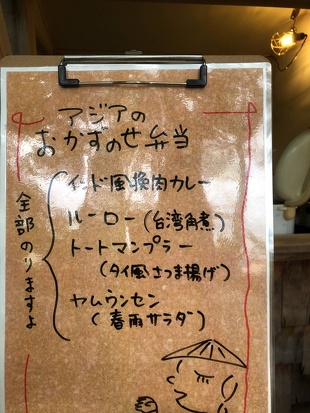 アジアの
おかずのせ弁当
全部のりますよ
インド風挽肉カレー
ルーロー(台湾角煮)
トートマンプラー
(タイ風さつま揚げ)
ヤムウンセン
(春雨サラダ)